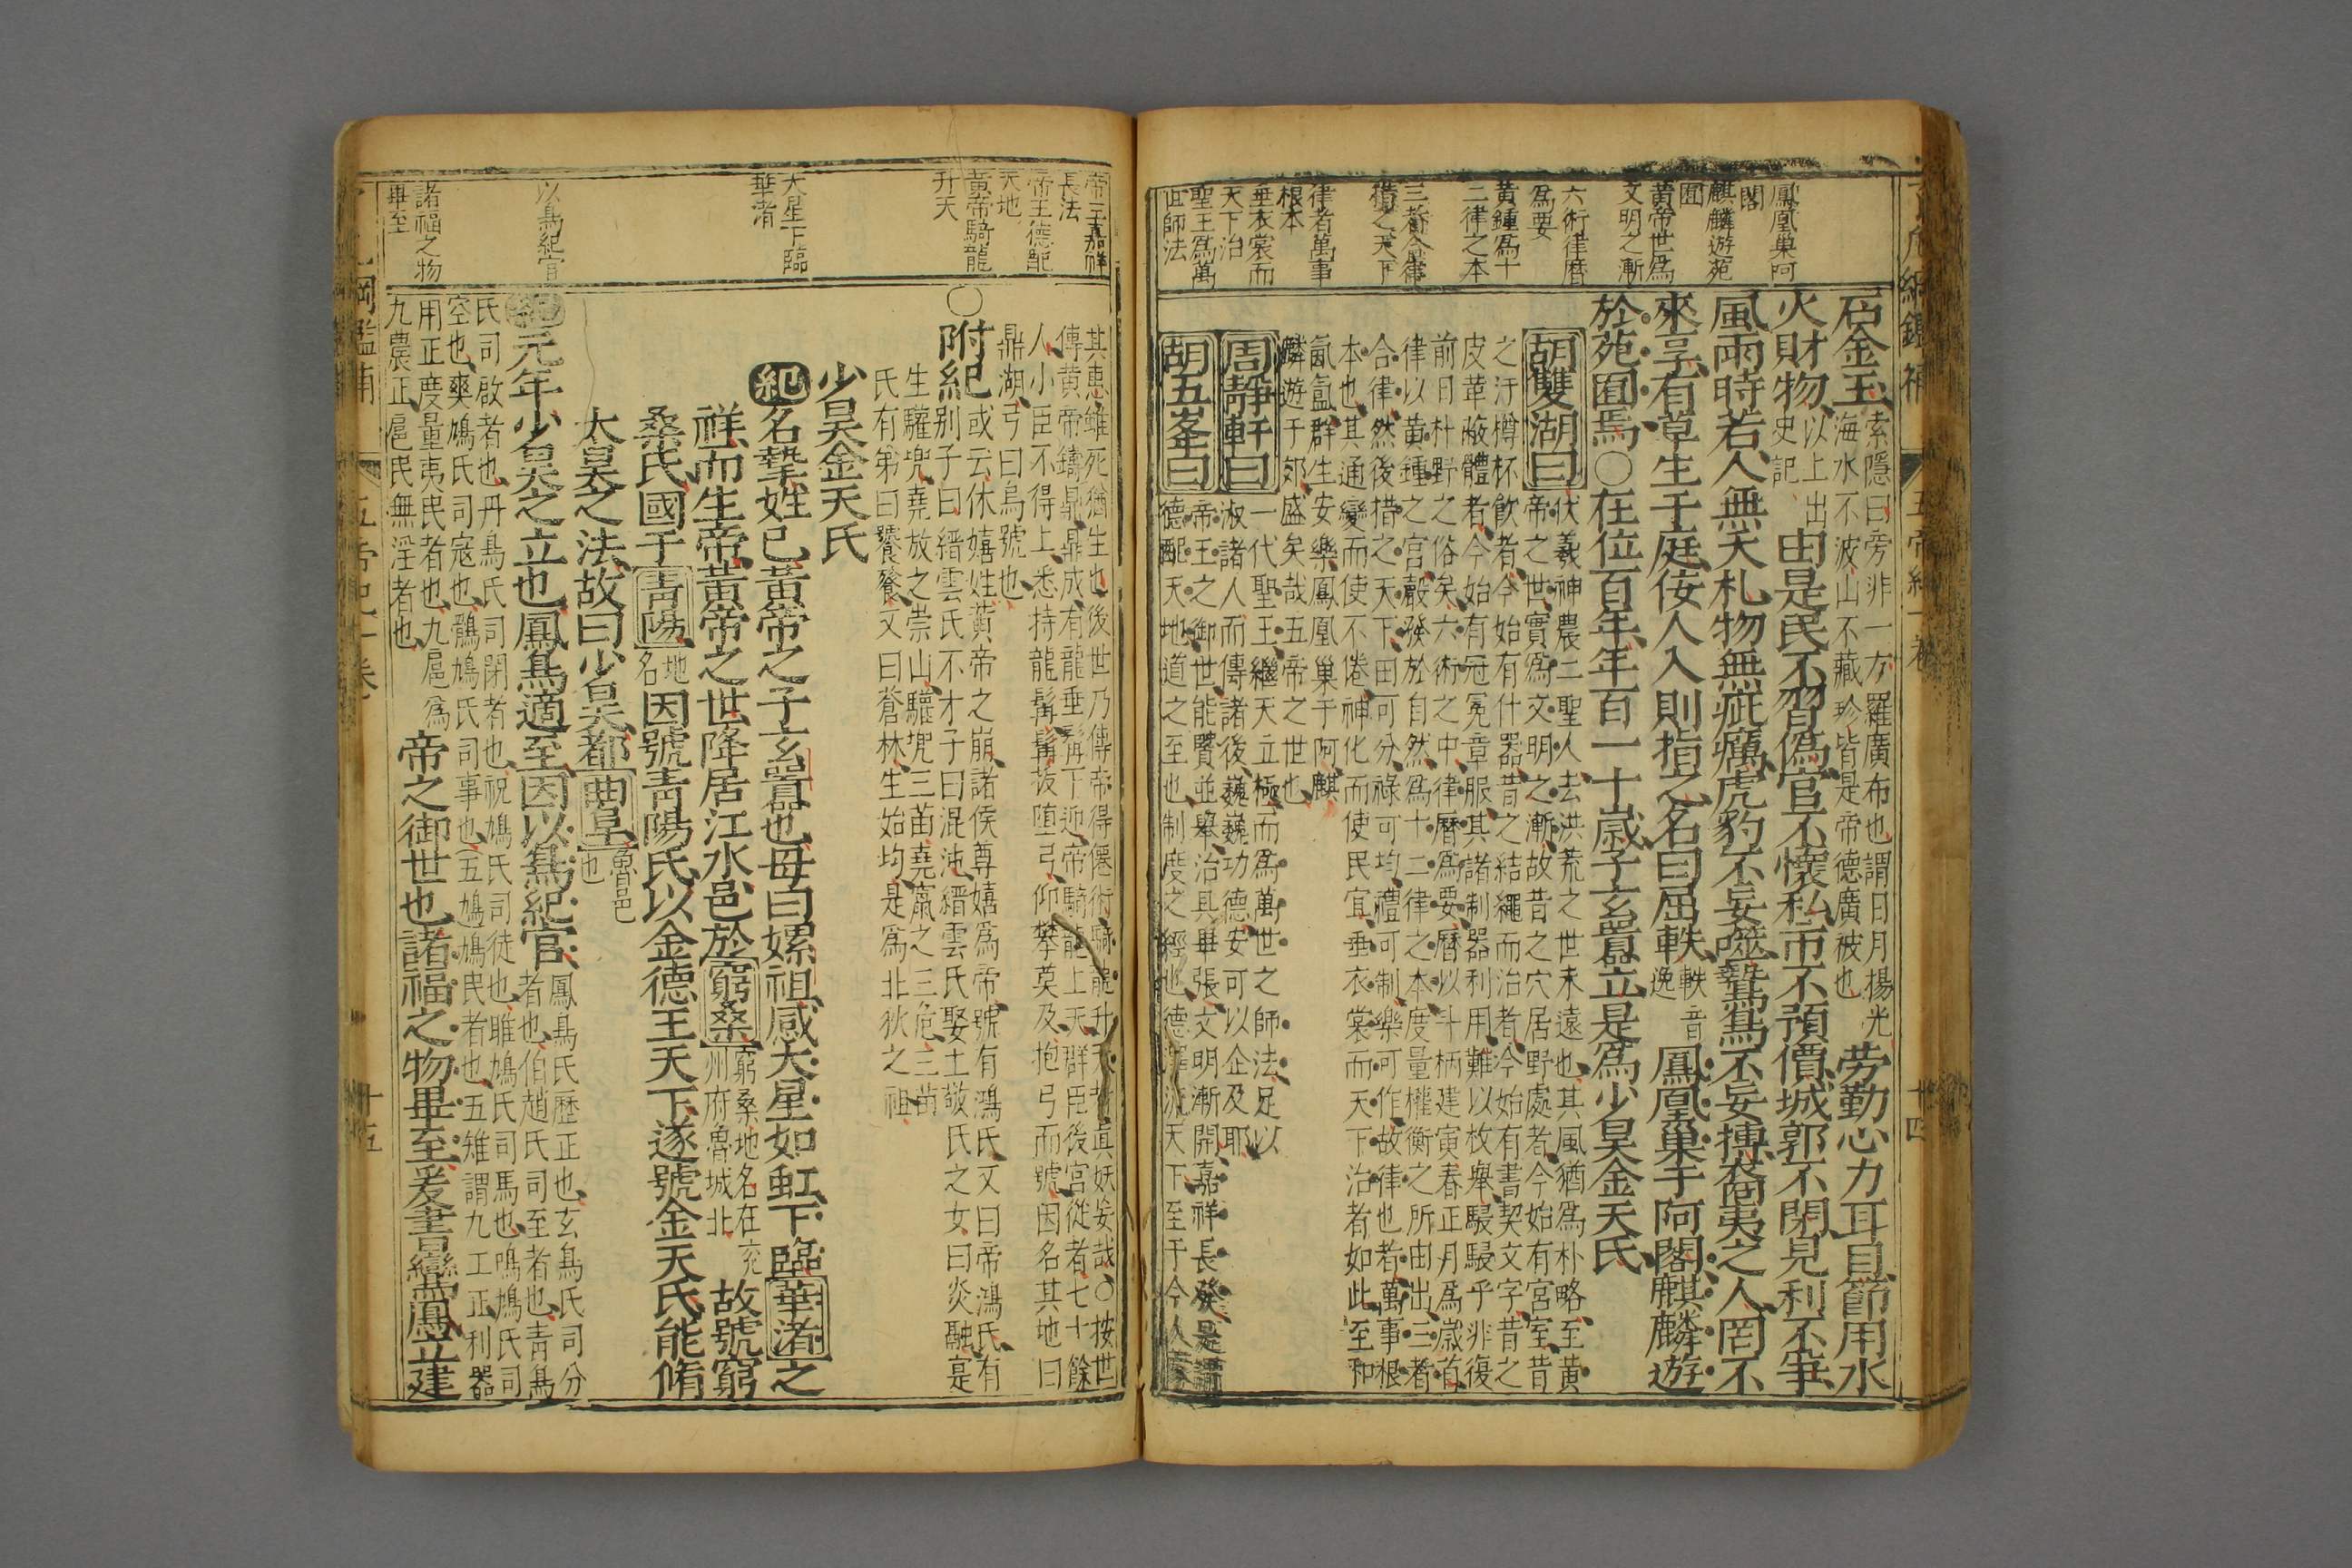 鳳凰巢阿
閣
麒麟遊苑
囿
黃帝世爲
文明之漸
六術律曆
爲要
黃鍾爲十
二律之本
三者合律
措之天下
律者萬事
根本
垂衣裳而
天下治
聖王爲萬
世師法
石金玉
索隱曰旁非一方羅廣布也謂日月揚光
海水不波山不藏珍皆是帝德廣被也
勞勤心力耳目節用水
火財物
以上出
史記
由是民不習僞官不懷私市不預價城郭不閉見利不爭
風雨時若人無夭札物無疵癘虎豹不妄噬鷙鳥不妄搏裔夷之人罔不
來享有草生于庭佞人入則指之名曰屈軼
軼音
逸
鳳凰巢于阿閣麒麟遊
於苑囿焉○在位百年年百一十歲子玄囂立是爲少昊金天氏
胡雙湖曰
伏羲神農二聖人去洪荒之世未遠也其風猶爲朴略至黃
帝之世實爲文明之漸故昔之穴居野處者今始有宮室昔
之汙樽杯飲者今始有什器昔之結繩而治者今始有書契文字昔之
皮革蔽體者今始有冠冕章服其諸制器利用難以枚舉駸駸乎非復
前日朴野之俗矣六術之中律曆爲要曆以斗柄建寅春正月爲歲首
律以黃鍾之宮聲發於自然爲十二律之本度量權衡之所由出三者
合律然後措之天下田可分祿可均禮可制樂可作故律也者萬事根
本也其通變而使不倦神化而使民宜垂衣裳而天下治者如此至和
氤氳群生安樂鳳凰巢于阿麒
麟遊于郊盛矣哉五帝之世也
周靜軒曰
一代聖王繼天立極而爲萬世之師法足以
淑諸人而傳諸後巍巍功德安可以企及耶
胡五峯曰
帝王之御世能賢並舉治具畢張文明漸開嘉祥長發是謂
德配天地道之至也制度之經也德澤流天下至于今人
五帝紀一卷
十四
帝王嘉祥
長法
帝王德配
天地
黃帝騎龍
升天
大星下臨
華渚
以鳥紀官
諸福之物
畢至
其惠雖死猶生也後世乃傳帝得僊術騎龍升天者真妖妄哉○按世
傳黃帝鑄鼎鼎成有龍垂髯下迎帝騎龍上天群臣後宮從者七十餘
人小臣不得上悉持龍髯髯拔墮弓仰攀莫及抱弓而號因名其地曰
鼎湖弓曰烏號也
○附紀
或云休嬉姓黃帝之崩諸侯尊嬉爲帝號有鴻氏又曰帝鴻氏有
別子曰縉雲氏不才子曰混沌縉雲氏娶土敬氏之女曰炎融寔
生驩兜堯放之崇山驩兜三苗堯竄之三危三苗
氏有弟曰饕餮又曰蒼林生始均是爲北狄之祖
少昊金天氏
紀名摯姓己黃帝之子玄囂也母曰嫘祖感大星如虹下臨華渚之
祥而生帝黃帝之世降居江水邑於窮桑
窮桑地名在兗
州府魯城北
故號窮
桑氏國于青陽
地
名
因號青陽氏以金德王天下遂號金天氏能脩
太昊之法故曰少昊都曲阜
魯邑
也
紀元年少昊之立也鳳鳥適至因以鳥紀官
鳳鳥氏歷正也玄鳥氏司分
者也伯趙氏司至者也青鳥
氏司啟者也丹鳥氏司閉者也祝鳩氏司徒也雎鳩氏司馬也鳲鳩氏司
空也爽鳩氏司寇也鶻鳩氏司事也五鳩鳩民者也五雉謂九工正利器
用正度量夷民者也九扈爲
九農正扈民無淫者也
帝之御世也諸福之物畢至爰書鸞鳳立建
五帝紀一卷
十五